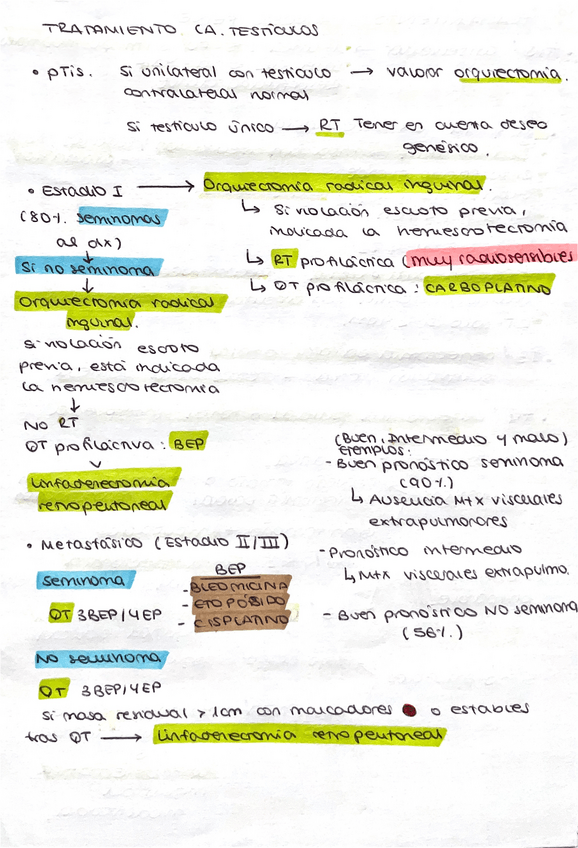 TRATAMIENTO CA. TESTÍCULOS
• pTis. Si unilateral con testículo → valorar orquiectomía.
contralateral normal
Si testículo único → RT Tener en cuenta deseo
genésico.
• Estadio I → Orquiectomía radical inguinal.
(80% seminomas
al dx)
↳ Si violación escroto previa,
indicada la hemiescrotectomía
↳ RT profiláctica (muy radiosensibles
↳ QT profiláctica: CARBOPLATINO
Si no seminoma
↓
Orquiectomía radical
inguinal.
Si violación escroto
previa, está indicada
la hemiescrotectomía
↓
NO RT
QT profiláctica: BEP
Linfadenectomía
retroperitoneal
(Buen, Intermedio y malo)
Ejemplos:
- Buen pronóstico seminoma
(90%)
↳ Ausencia Mtx viscerales
extrapulmonares
- Pronóstico intermedio
↳ Mtx viscerales extrapulmo.
- Buen pronóstico NO seminoma
(56%)
• Metastásico (Estadio II/III)
Seminoma
QT 3BEP/4EP
BEP
- BLEOMICINA
- ETOPÓSIDO
- CISPLATINO
No seminoma
QT 3BEP/4EP
Si masa residual > 1cm con marcadores o estables
tras QT → Linfadenectomía retroperitoneal